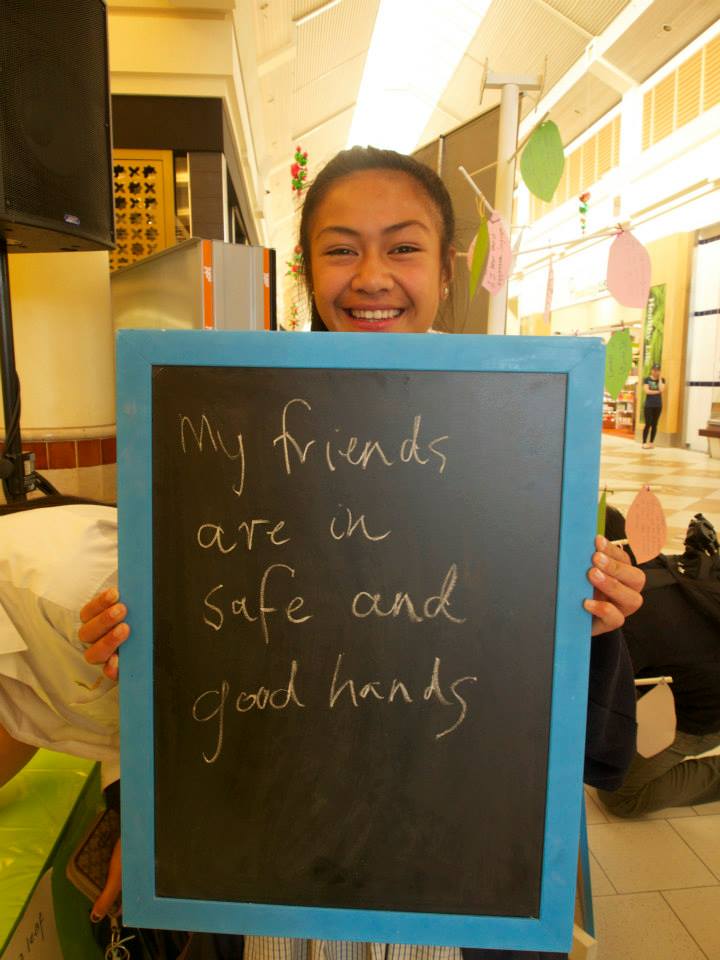 My friends
are in
safe and
good hands